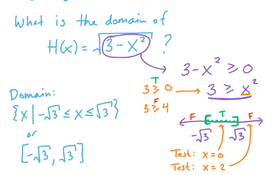 What is the domain of
H(x) = √3 - x² ?
3 - x² ≥ 0
T
3 ≥ 0
3 ≥ x²
F
3 ≥ 4
Domain:
{x | -√3 ≤ x ≤ √3}
or
[-√3, √3]
F T F
-√3 √3
Test: x = 0
Test: x = 2